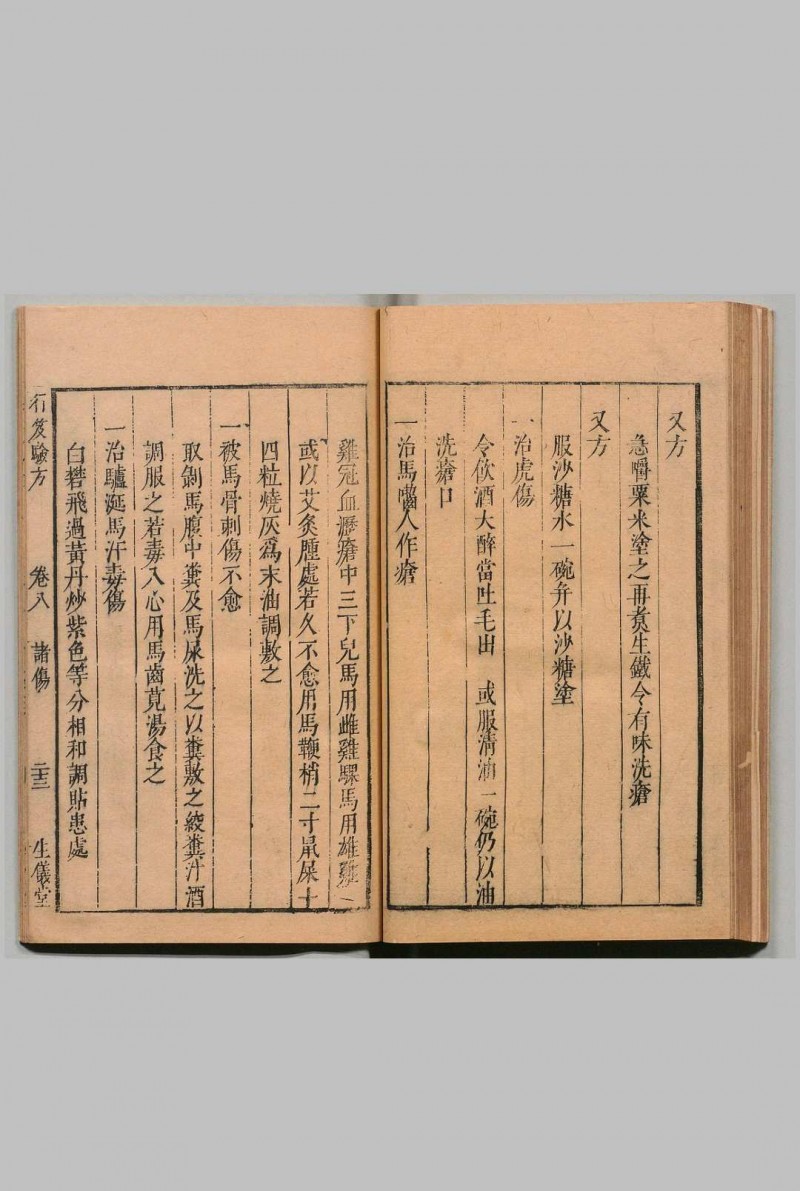 又方
急嚼粟米塗之再煑生鐵令有味洗瘡
又方
服沙糖水一碗并以沙糖塗
一治虎傷
令飲酒大醉當吐毛出 或服清油一碗仍以油
洗瘡口
一治馬嚙人作瘡
雞冠血瀝瘡中三下兒馬用雌雞騍馬用雄雞
或以艾灸腫處若久不愈用馬鞭梢二寸鼠屎十
四粒燒灰爲末油調敷之
一被馬骨刺傷不愈
取剝馬腹中糞及馬尿洗之以糞敷之絞糞汁酒
調服之若毒入心用馬齒莧湯食之
一治驢涎馬汗毒傷
白礬飛過黃丹炒紫色等分相和調貼患處
行笈驗方 卷八 諸傷 二十三 生儀堂